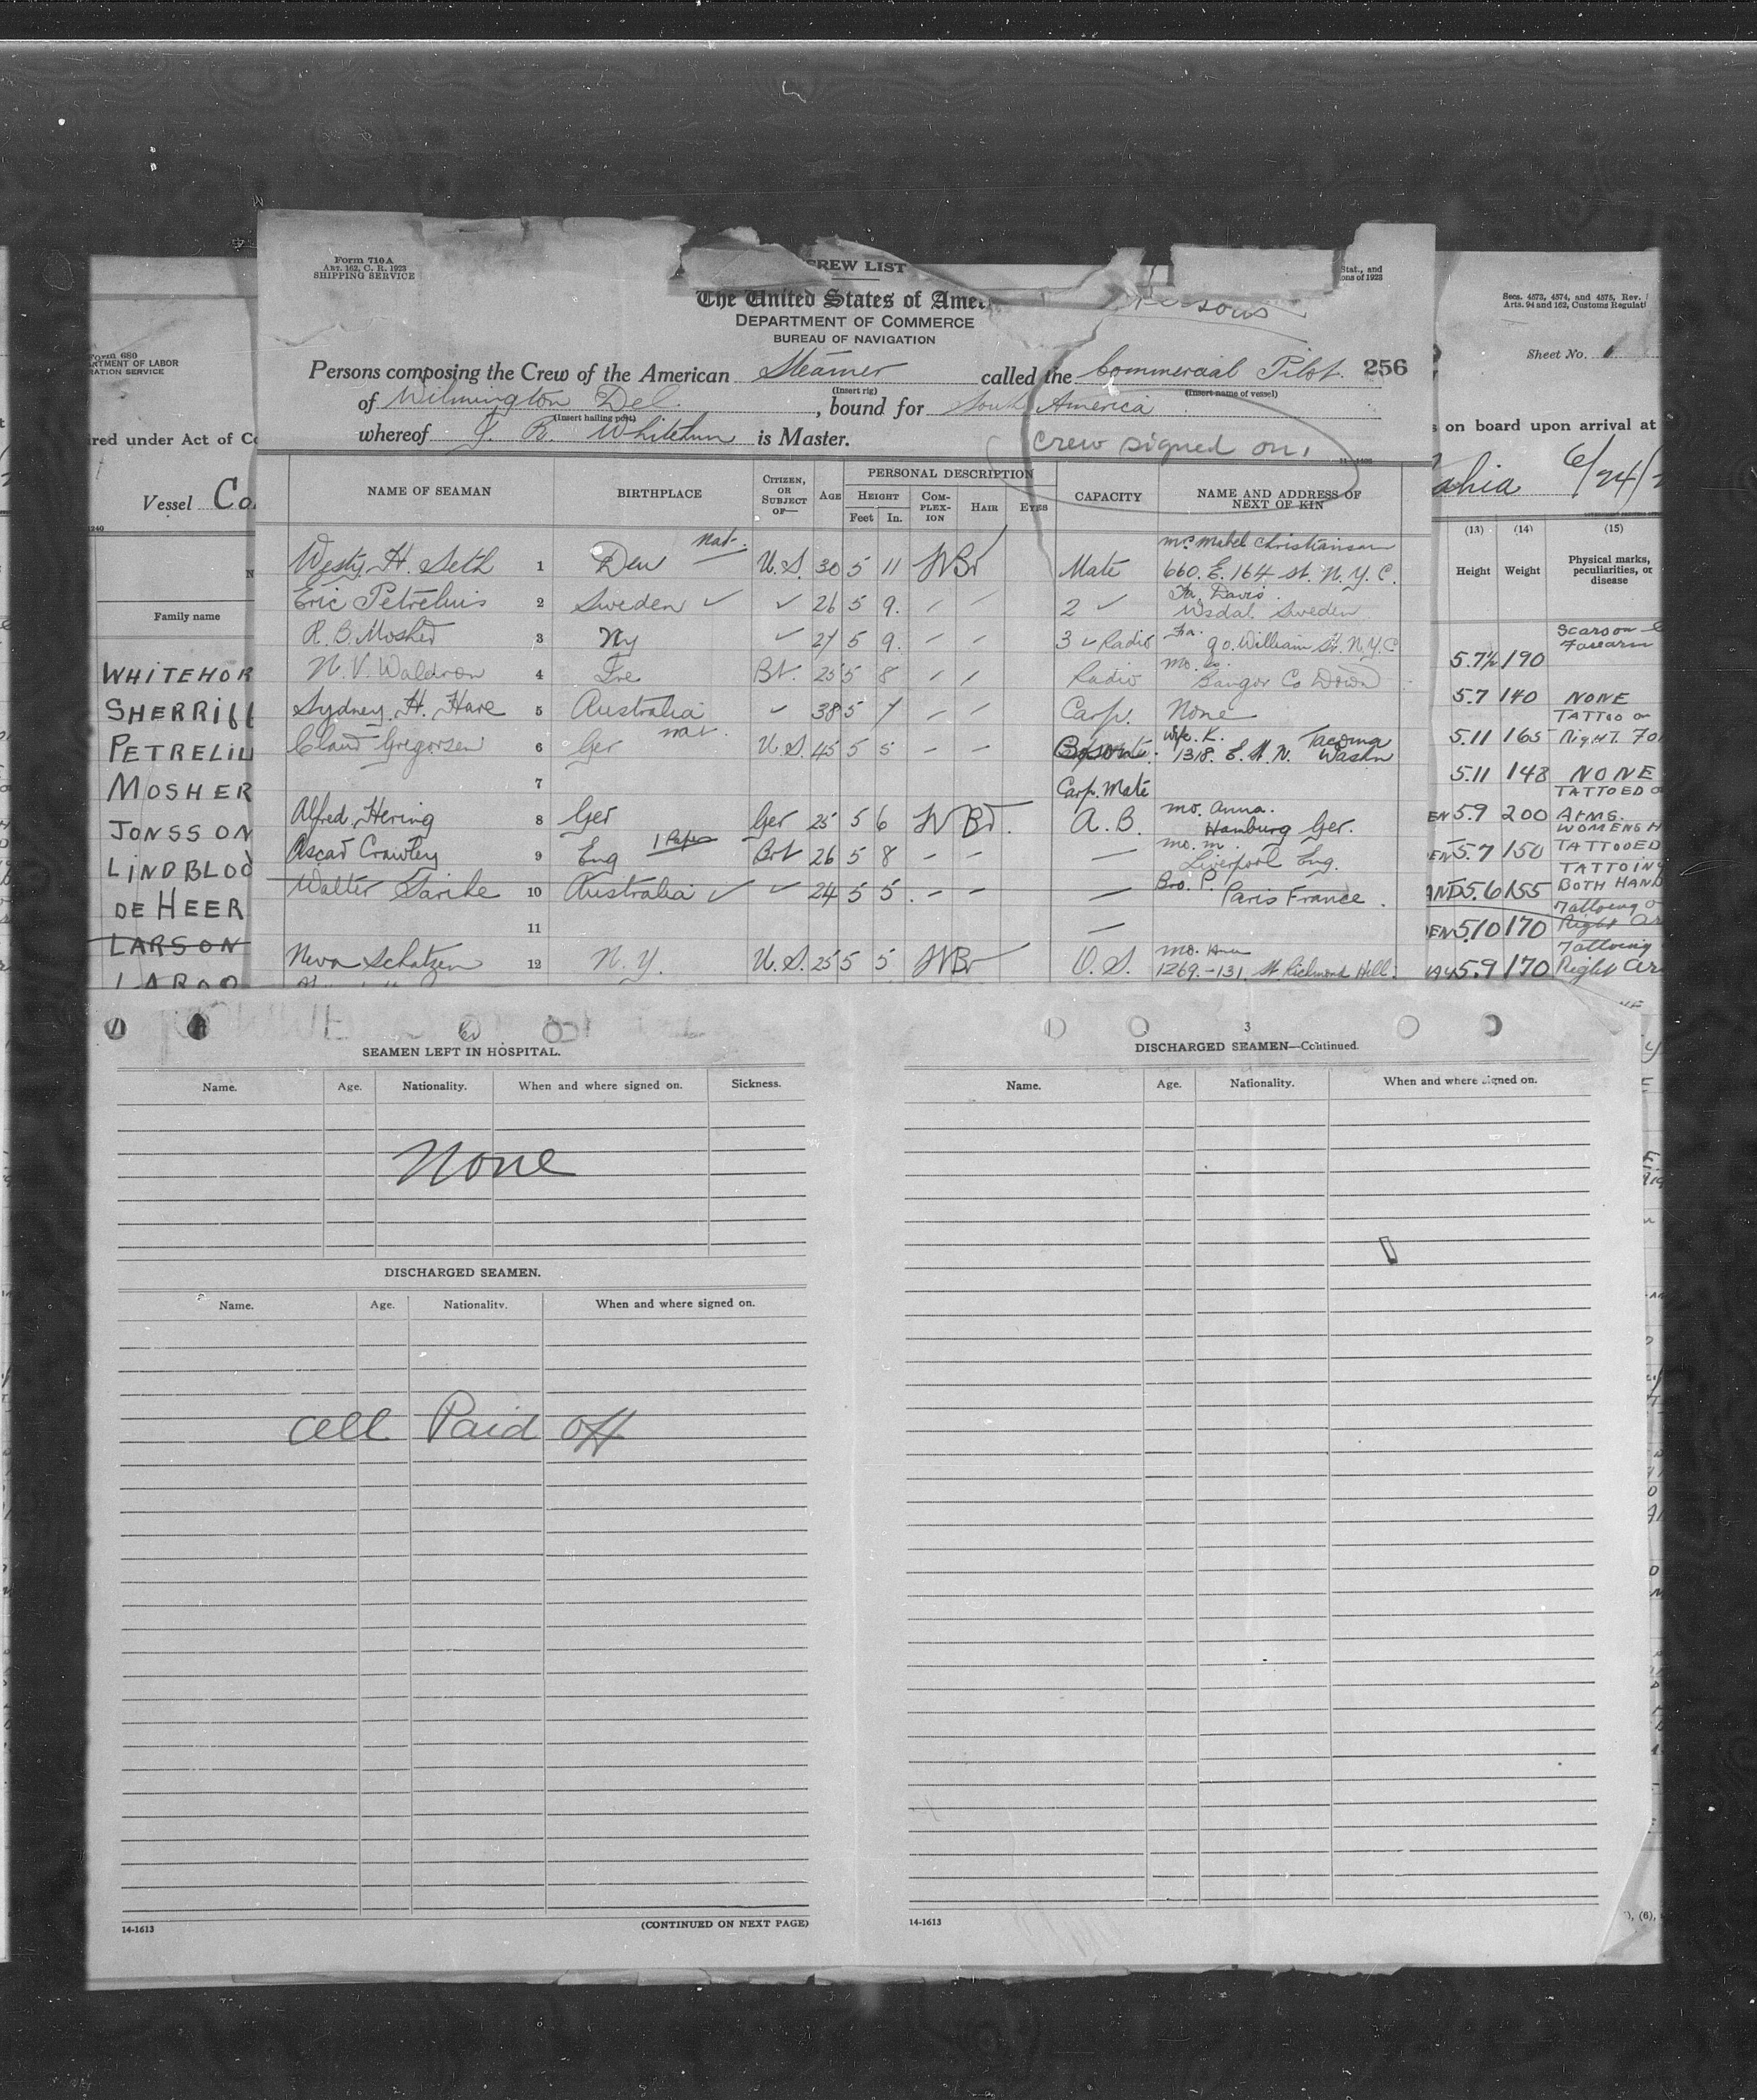 Form 710 A
ART. 162, C. R. 1923
SHIPPING SERVICE
CREW LIST
Stat., and
ons of 1923
The United States of Amer
DEPARTMENT OF COMMERCE
BUREAU OF NAVIGATION
Persons composing the Crew of the American Steamer called the Commercial Pilot. 256
(Insert rig) (Insert name of vessel)
of Wilmington Del. , bound for South America
(Insert hailing port)
whereof J. R. Whitehurn is Master.
Crew signed on.
NAME OF SEAMAN BIRTHPLACE CITIZEN, OR SUBJECT OF— AGE PERSONAL DESCRIPTION CAPACITY NAME AND ADDRESS OF NEXT OF KIN
HEIGHT COMPLEXION HAIR EYES
Feet In.
Nat. Mabel Christiansen
Westy H. Seth 1 Den U.S. 30 5 11 W Br Mate 660. E. 164 st. N.Y.C.
Fa. Davis.
Eric Petrelius 2 Sweden ✓ ✓ 26 5 9. 2 ✓ Sweden
Fa.
R. B. Mosher 3 Ny ✓ 27 5 9. 3 ✓ Radio 90. William St. N.Y.C
N. V. Waldron 4 Ire Bt. 25 5 8 Radio Bangor Co Down
Sydney. H. Hare 5 Australia ✓ 38 5 7 Carp. None
nat. Wife. K. Tacoma
Claud Gregorsen 6 Ger U.S. 45 5 5 1318. E. St. N. Washn
7 Carp. Mate
mo. Anna.
Alfred Hering 8 Ger Ger 25 5 6 W Br. A.B. Hamburg Ger.
mo. m.
Oscar Crawley 9 Eng 1 Paper Brt 26 5 8 Liverpool Eng.
Bro. P.
Walter Sarike 10 Australia ✓ ✓ 24 5 5. Paris France.
11
mo.
Neva Schatzen 12 N.Y. U.S. 25 5 5 W Br O.S. 1269.-131. St. Richmond Hill.
Form 680
ARTMENT OF LABOR
RATION SERVICE
ired under Act of Co
Vessel Co
1240
Family name
WHITEHOR
SHERRIff
PETRELIU
MOSHER
JONSSON
LINDBLOO
DE HEER
LARSON
Secs. 4573, 4574, and 4575, Rev.
Arts. 94 and 162, Customs Regulati
Sheet No. 1
s on board upon arrival at
ahia 6/24/2
(13) (14) (15)
Height Weight Physical marks, peculiarities, or disease
Scars on
5.7½ 190 Forearm
5.7 140 NONE
TATTOO on
5.11 165 RIGHT FO
5.11 148 NONE
TATTOED
EN 5.9 200 ARMS.
WOMENS H
EN 5.7 150 TATTOOED
TATTOING
AND 5.6 155 BOTH HAND
Tattoing o
EN 5.10 170 Right ar
Tattoing
WAY 5.9 170 Right ar
SEAMEN LEFT IN HOSPITAL.
Name. Age. Nationality. When and where signed on. Sickness.
None
DISCHARGED SEAMEN.
Name. Age. Nationality. When and where signed on.
all Paid off
14-1613 (CONTINUED ON NEXT PAGE)
3
DISCHARGED SEAMEN—Continued.
Name. Age. Nationality. When and where signed on.
14-1613
), (6),